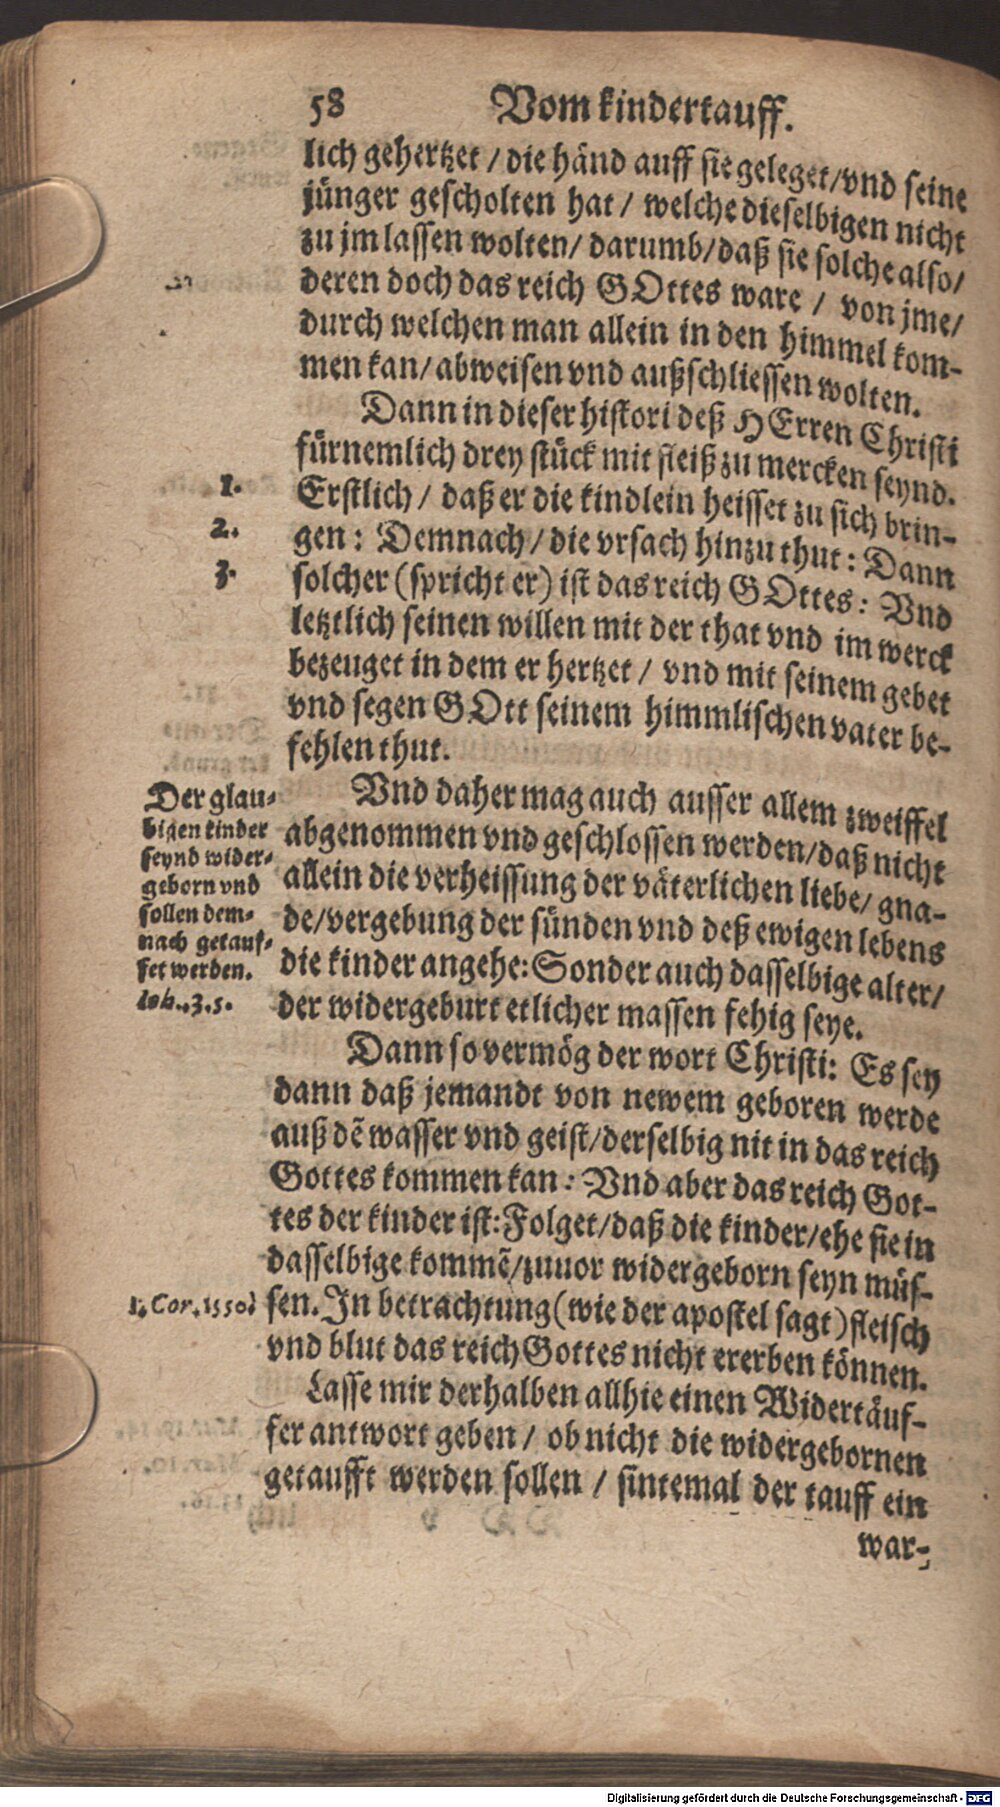 58 Vom kindertauff.
lich gehertzet / die händ auff sie geleget/vnd seine
jünger gescholten hat / welche dieselbigen nicht
zu jm lassen wolten/ darumb/daß sie solche also/
deren doch das reich GOttes ware / von jme/
durch welchen man allein in den himmel kom-
men kan/ abweisen vnd außschliessen wolten.
Dann in dieser histori deß HErren Christi
fürnemlich drey stück mit fleiß zu mercken seynd.
1.
Erstlich / daß er die kindlein heisset zu sich brin-
2.
gen: Demnach / die vrsach hinzu thut: Dann
3.
solcher (spricht er) ist das reich GOttes: Vnd
letztlich seinen willen mit der that vnd im werck
bezeuget in dem er hertzet / vnd mit seinem gebet
vnd segen GOtt seinem himmlischen vater be-
fehlen thut.
Der glau-
bigen kinder
seynd wider-
geborn vnd
sollen dem-
nach getauf-
fet werden.
Ioh..3.5.
Vnd daher mag auch ausser allem zweiffel
abgenommen vnd geschlossen werden/daß nicht
allein die verheissung der väterlichen liebe/ gna-
de/vergebung der sünden vnd deß ewigen lebens
die kinder angehe: Sonder auch dasselbige alter/
der widergeburt etlicher massen fehig seye.
Dann so vermög der wort Christi: Es sey
dann daß jemandt von newem geboren werde
auß dē wasser vnd geist/derselbig nit in das reich
Gottes kommen kan: Vnd aber das reich Got-
tes der kinder ist: Folget/daß die kinder/ehe sie in
dasselbige kommē/zuuor widergeborn seyn müs-
1. Cor.
sen. In betrachtung (wie der apostel sagt) fleisch
vnd blut das reich Gottes nicht ererben können.
Lasse mir derhalben allhie einen Widertäuf-
fer antwort geben / ob nicht die widergebornen
getaufft werden sollen / sintemal der tauff ein
war-
Digitalisierung gefördert durch die Deutsche Forschungsgemeinschaft - DFG